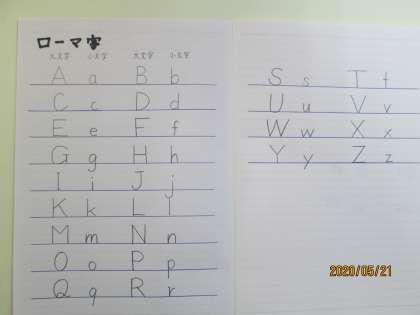 ローマ字
大文字 小文字 大文字 小文字
A a B b
C c D d
E e F f
G g H h
I i J j
K k L l
M m N n
O o P p
Q q R r
S s T t
U u V v
W w X x
Y y Z z
2020/05/21